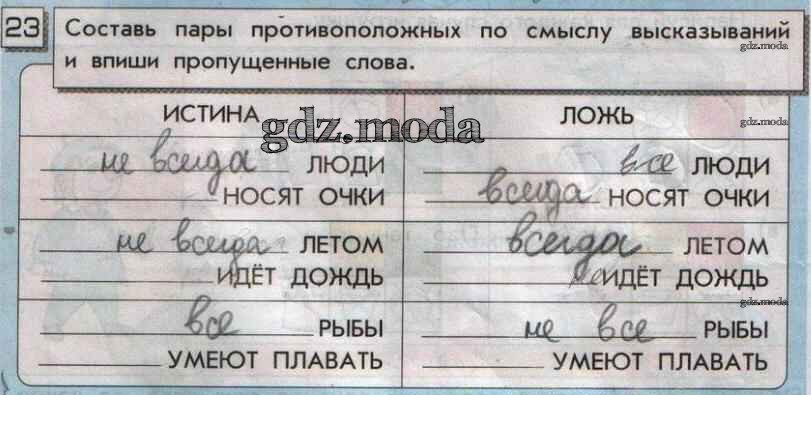 23
Составь пары противоположных по смыслу высказываний
gdz.moda
и впиши пропущенные слова.
ИСТИНА
ЛОЖЬ
gdz.moda
gdz.moda
не всегда ЛЮДИ
все ЛЮДИ
НОСЯТ ОЧКИ
всегда НОСЯТ ОЧКИ
не всегда ЛЕТОМ
всегда ЛЕТОМ
ИДЁТ ДОЖДЬ
ИДЁТ ДОЖДЬ
gdz.moda
все РЫБЫ
не все РЫБЫ
УМЕЮТ ПЛАВАТЬ
УМЕЮТ ПЛАВАТЬ